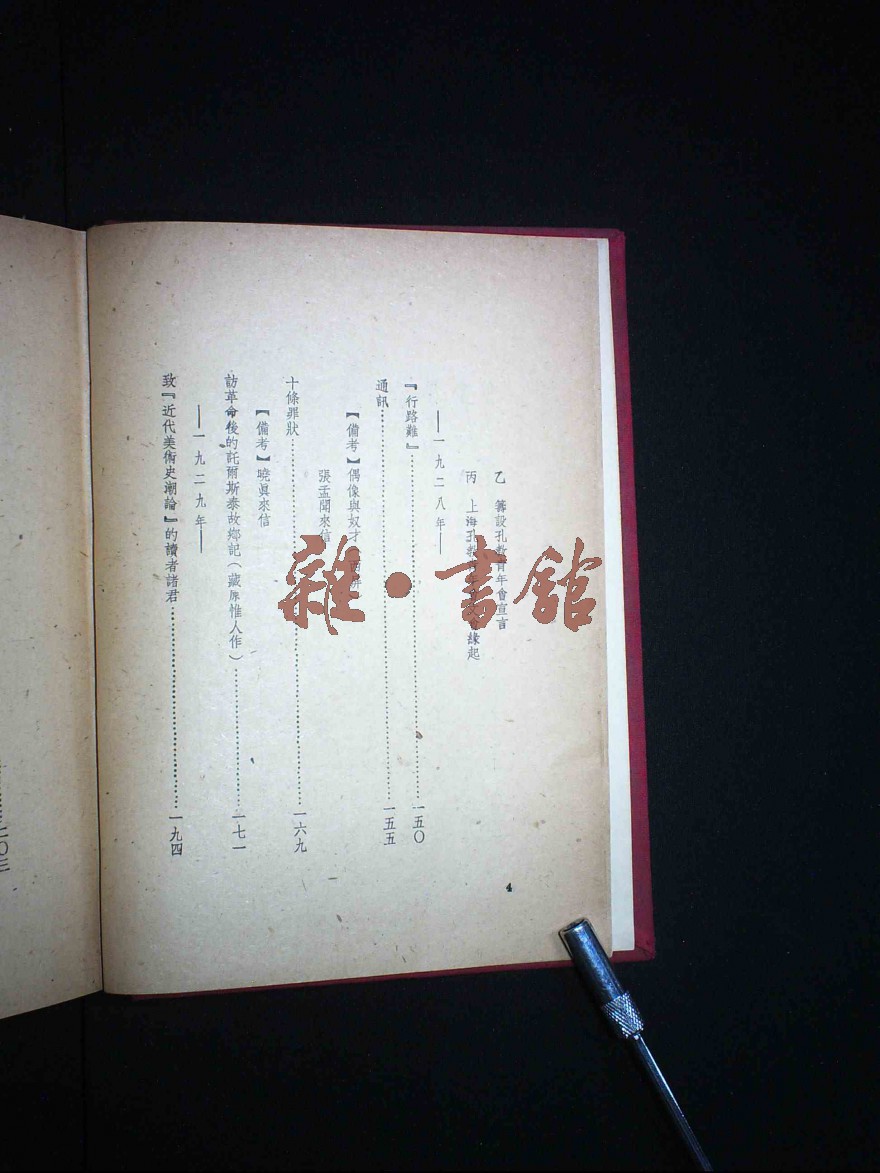 乙　籌設孔敎青年會宣言
丙　上海孔敎 緣起
——一九二八年——
『行路難』……一五〇
通訊……一五五
【備考】偶像與奴才（
張孟聞來信
十條罪狀……一六九
【備考】曉眞來信
訪革命後的託爾斯泰故鄉記（藏原惟人作）……一七一
——一九二九年——
致『近代美術史潮論』的讀者諸君……一九四
4
二〇三
雜·書館